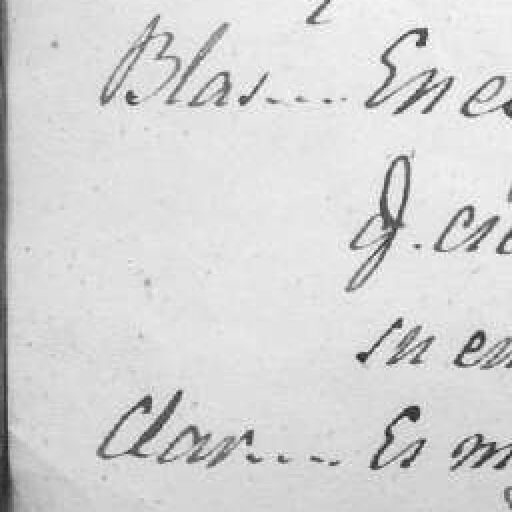 Blas.... En es
J. cri
sn en
Clar.... Es m